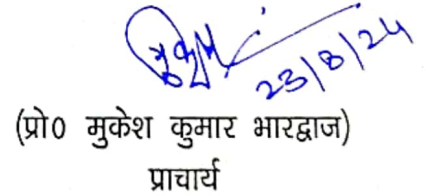 23/8/24
(प्रो० मुकेश कुमार भारद्वाज)
प्राचार्य